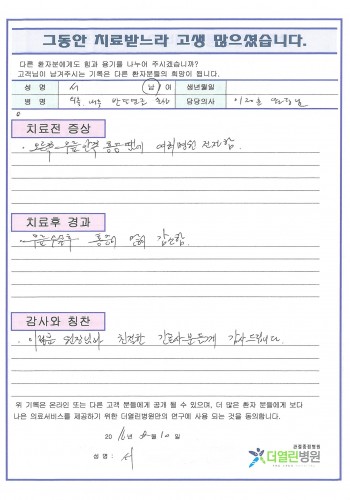 그동안 치료받느라 고생 많으셨습니다.
다른 환자분에게도 힘과 용기를 나누어 주시겠습니까?
고객님이 남겨주시는 기록은 다른 환자분들의 희망이 됩니다.
성 명 서 남 여 생년월일
병 명 내측 반월연골 담당의사 원장님
치료전 증상
. 오른쪽 무릎 안쪽 통증 때문에 여러병원 전전함.
치료후 경과
무릎수술후 통증이 감소함.
감사와 칭찬
. 원장님과 친절한 간호사분들께 감사드립니다.
위 기록은 온라인 또는 다른 고객 분들에게 공개 될 수 있으며, 더 많은 환자 분들에게 보다
나은 의료서비스를 제공하기 위한 더열린병원만의 연구에 사용 되는 것을 동의합니다.
20 16년 8월 10일
성 명 : 서
관절중점병원
더열린병원